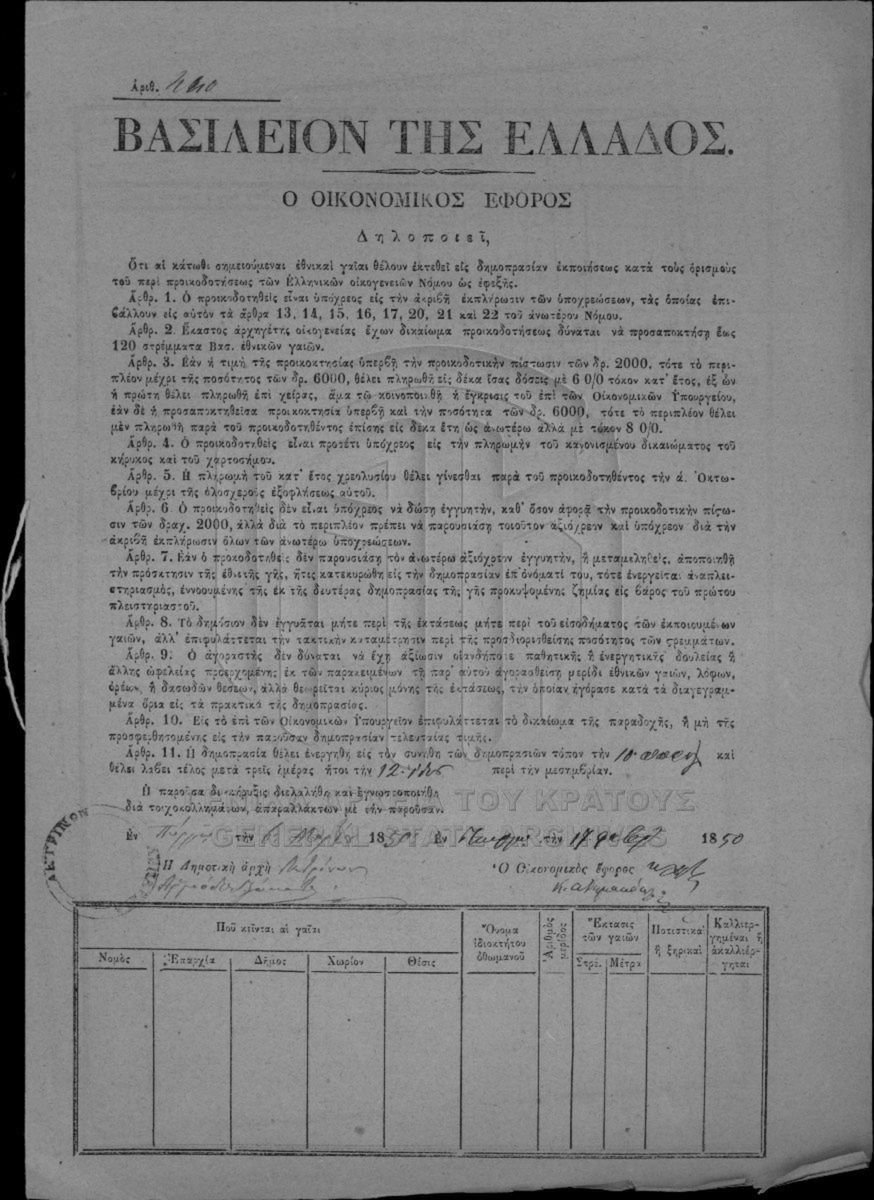 Ἀριθ.
ΒΑΣΙΛΕΙΟΝ ΤΗΣ ΕΛΛΑΔΟΣ.
Ο ΟΙΚΟΝΟΜΙΚΟΣ ΕΦΟΡΟΣ
Δηλοποιεῖ,
Ὅτι αἱ κάτωθι σημειούμεναι ἐθνικαὶ γαῖαι θέλουν ἐκτεθεῖ εἰς δημοπρασίαν ἐκποιήσεως κατὰ τοὺς ὁρισμοὺς
τοῦ περὶ προικοδοτήσεως τῶν Ἑλληνικῶν οἰκογενειῶν Νόμου ὡς ἐφεξῆς.
Ἄρθρ. 1. Ὁ προικοδοτηθεὶς εἶναι ὑπόχρεος εἰς τὴν ἀκριβῆ ἐκπλήρωσιν τῶν ὑποχρεώσεων, τὰς ὁποίας ἐπι-
βάλλουν εἰς αὐτὸν τὰ ἄρθρα 13, 14, 15, 16, 17, 20, 21 καὶ 22 τοῦ ἀνωτέρου Νόμου.
Ἄρθρ. 2. Ἕκαστος ἀρχηγέτης οἰκογενείας ἔχων δικαίωμα προικοδοτήσεως δύναται νὰ προσαποκτήσῃ ἕως
120 στρέμματα Βασ. ἐθνικῶν γαιῶν.
Ἄρθρ. 3. Ἐὰν ἡ τιμὴ τῆς προικοκτησίας ὑπερβῇ τὴν προικοδοτικὴν πίστωσιν τῶν δρ. 2000, τότε τὸ περι-
πλέον μέχρι τῆς ποσότητος τῶν δρ. 6000, θέλει πληρωθῆ εἰς δέκα ἴσας δόσεις μὲ 6 0/0 τόκον κατ' ἔτος, ἐξ ὧν
ἡ πρώτη θέλει πληρωθῆ ἐπὶ χεῖρας, ἅμα τῷ κοινοποιηθῇ ἡ ἔγκρισις τοῦ ἐπὶ τῶν Οἰκονομικῶν Ὑπουργείου,
ἐὰν δὲ ἡ προσαποκτηθεῖσα προικοκτησία ὑπερβῇ καὶ τὴν ποσότητα τῶν δρ. 6000, τότε τὸ περιπλέον θέλει
μὲν πληρωθῆ παρὰ τοῦ προικοδοτηθέντος ἐπίσης εἰς δέκα ἔτη ὡς ἀνωτέρω ἀλλὰ μὲ τόκον 8 0/0.
Ἄρθρ. 4. Ὁ προικοδοτηθεὶς εἶναι προσέτι ὑπόχρεος εἰς τὴν πληρωμὴν τοῦ κανονισμένου δικαιώματος τοῦ
κήρυκος καὶ τοῦ χαρτοσήμου.
Ἄρθρ. 5. Ἡ πληρωμὴ τοῦ κατ' ἔτος χρεολυσίου θέλει γίνεσθαι παρὰ τοῦ προικοδοτηθέντος τὴν ά. Ὀκτω-
βρίου μέχρι τῆς ὁλοσχεροῦς ἐξοφλήσεως αὐτοῦ.
Ἄρθρ. 6. Ὁ προικοδοτηθεὶς δὲν εἶναι ὑπόχρεος νὰ δώσῃ ἐγγυητὴν, καθ' ὅσον ἀφορᾷ τὴν προικοδοτικὴν πίστω-
σιν τῶν δραχ. 2000, ἀλλὰ διὰ τὸ περιπλέον πρέπει νὰ παρουσιάσῃ τοιοῦτον ἀξιόχρεον καὶ ὑπόχρεον διὰ τὴν
ἀκριβῆ ἐκπλήρωσιν ὅλων τῶν ἀνωτέρω ὑποχρεώσεων.
Ἄρθρ. 7. Ἐὰν ὁ προικοδοτηθεὶς δὲν παρουσιάσῃ τὸν ἀνωτέρω ἀξιόχρεον ἐγγυητὴν, ἢ μεταμεληθεὶς, ἀποποιηθῇ
τὴν πρόσκτησιν τῆς ἐθνικῆς γῆς, ἥτις κατεκυρώθη εἰς τὴν δημοπρασίαν ἐπ' ὀνόματί του, τότε ἐνεργεῖται ἀναπλει-
στηριασμὸς, ἐννοουμένης τῆς ἐκ τῆς δευτέρας δημοπρασίας τῆς γῆς προκυψομένης ζημίας εἰς βάρος τοῦ πρώτου
πλειστηριαστοῦ.
Ἄρθρ. 8. Τὸ δημόσιον δὲν ἐγγυᾶται μήτε περὶ τῆς ἐκτάσεως μήτε περὶ τοῦ εἰσοδήματος τῶν ἐκποιουμένων
γαιῶν, ἀλλ' ἐπιφυλάττεται τὴν τακτικὴν καταμέτρησιν περὶ τῆς προσδιορισθείσης ποσότητος τῶν στρεμμάτων.
Ἄρθρ. 9. Ὁ ἀγοραστὴς δὲν δύναται νὰ ἔχῃ ἀξίωσιν οἱανδήποτε παθητικῆς ἢ ἐνεργητικῆς δουλείας ἢ
ἄλλης ὠφελείας προερχομένης ἐκ τῶν παρακειμένων τῇ παρ' αὐτοῦ ἀγορασθείσῃ μερίδι ἐθνικῶν γαιῶν, λόφων,
ὀρέων, ἢ δασωδῶν θέσεων, ἀλλὰ θεωρεῖται κύριος μόνης τῆς ἐκτάσεως, τὴν ὁποίαν ἠγόρασε κατὰ τὰ διαγεγραμ-
μένα ὅρια εἰς τὰ πρακτικὰ τῆς δημοπρασίας.
Ἄρθρ. 10. Εἰς τὸ ἐπὶ τῶν Οἰκονομικῶν Ὑπουργεῖον ἐπιφυλάττεται τὸ δικαίωμα τῆς παραδοχῆς, ἢ μὴ τῆς
προσφερθησομένης εἰς τὴν παροῦσαν δημοπρασίαν τελευταίας τιμῆς.
Ἄρθρ. 11. Ἡ δημοπρασία θέλει ἐνεργηθῆ εἰς τὸν συνήθη τῶν δημοπρασιῶν τόπον τὴν 10 καὶ
θέλει λάβει τέλος μετὰ τρεῖς ἡμέρας ἤτοι τὴν 12 περὶ τὴν μεσημβρίαν.
Ἡ παροῦσα διακήρυξις διελαλήθη καὶ ἐγνωστοποιήθη
διὰ τοιχοκολλημάτων, ἀπαραλλάκτων μὲ τὴν παροῦσαν.
ΤΟΥ ΚΡΑΤΟΥΣ
Ἐν τὴν 6 1850 Ἐν τὴν 17 1850
Ἡ Δημοτικὴ ἀρχὴ Ὁ Οἰκονομικὸς Ἔφορος
Ποῦ κεῖνται αἱ γαῖαι
Νομὸς Ἐπαρχία Δῆμος Χωρίον Θέσις
Ὄνομα ἰδιοκτήτου ὀθωμανοῦ
Ἀριθμὸς μερίδος
Ἔκτασις τῶν γαιῶν
Στρε. Μέτρα
Ποτιστικαὶ ἢ ξηρικαὶ
Καλλιεργημέναι ἢ ἀκαλλιέργηται